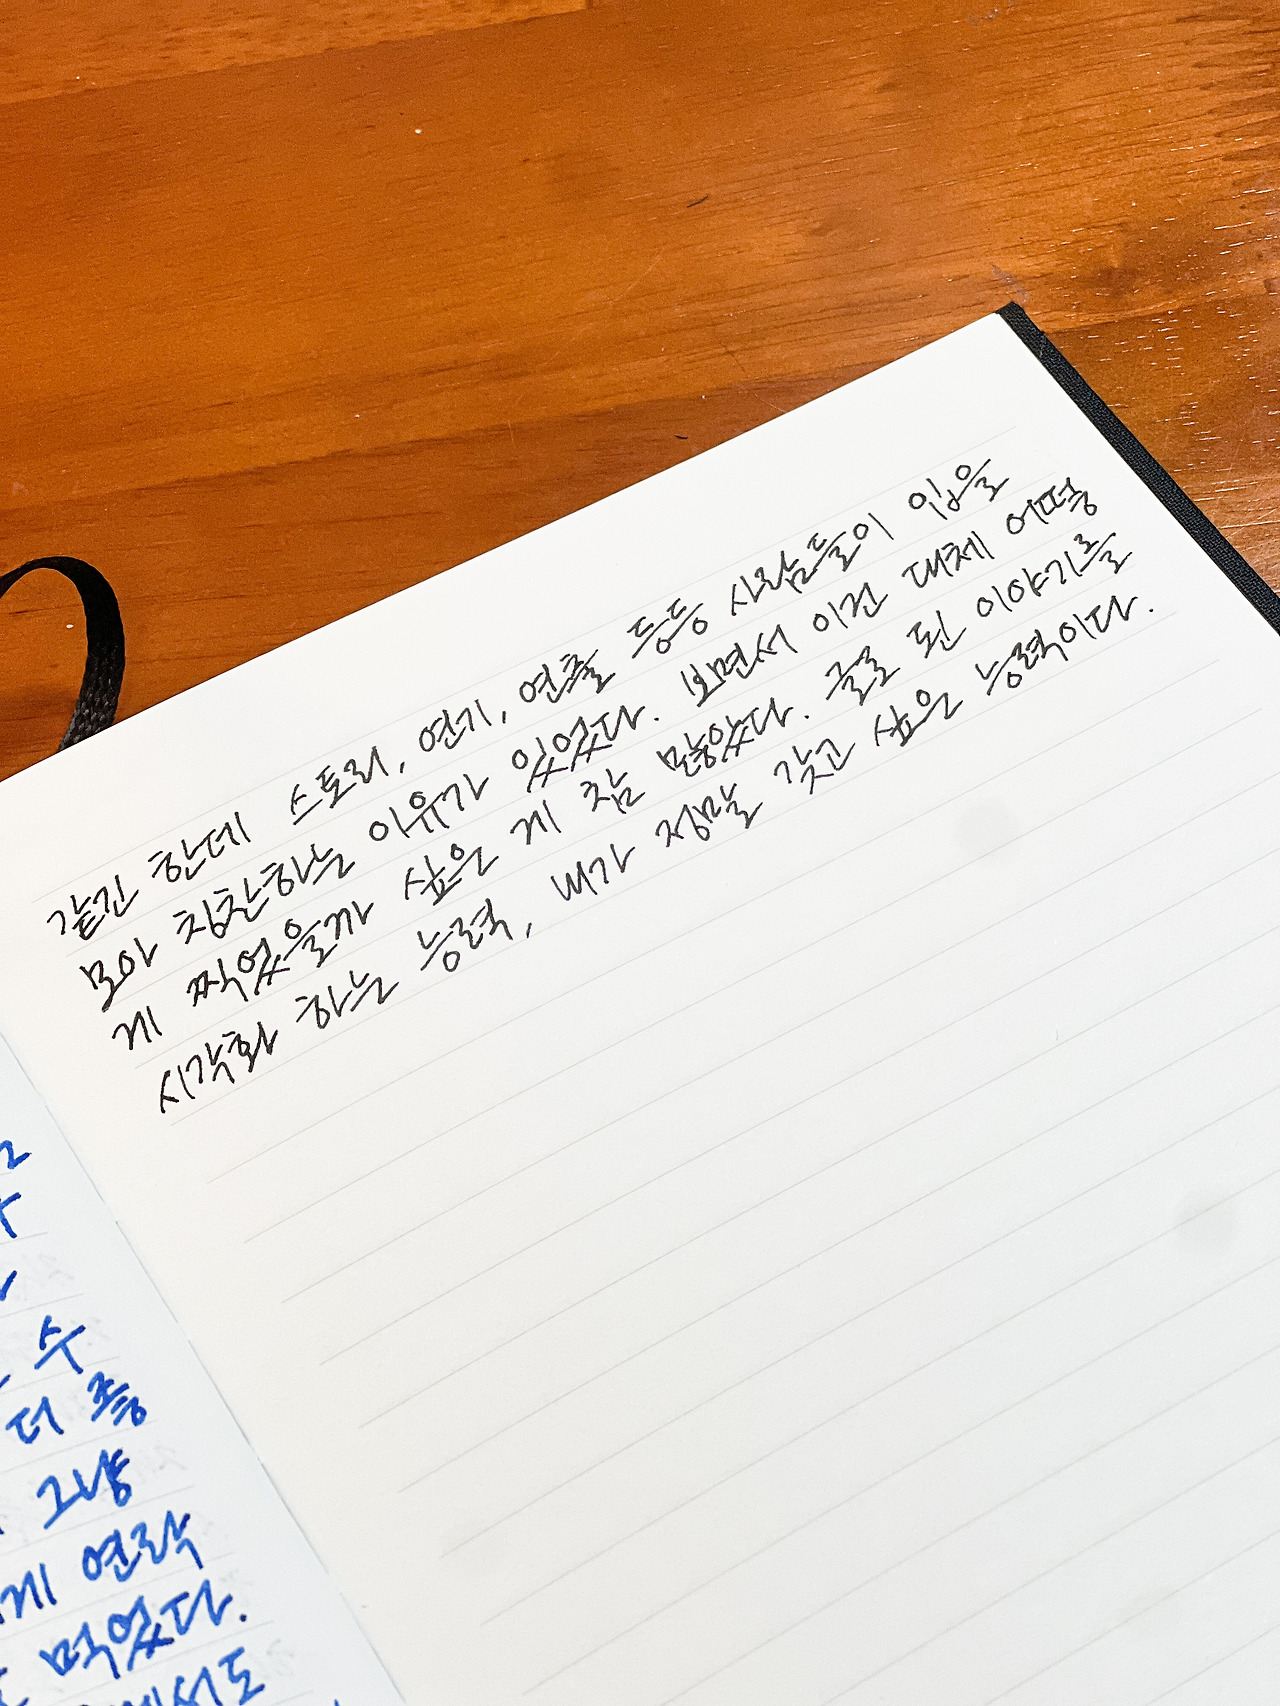 같긴 한데 스토리, 연기, 연출 등등 사람들이 입을
모아 칭찬하는 이유가 있었다. 보면서 이건 대체 어떻
게 찍었을까 싶은 게 참 많았다. 글로 된 이야기를
시각화 하는 능력, 내가 정말 갖고 싶은 능력이다.
수
더 좋
그냥
게 연락
먹었다.
에서도